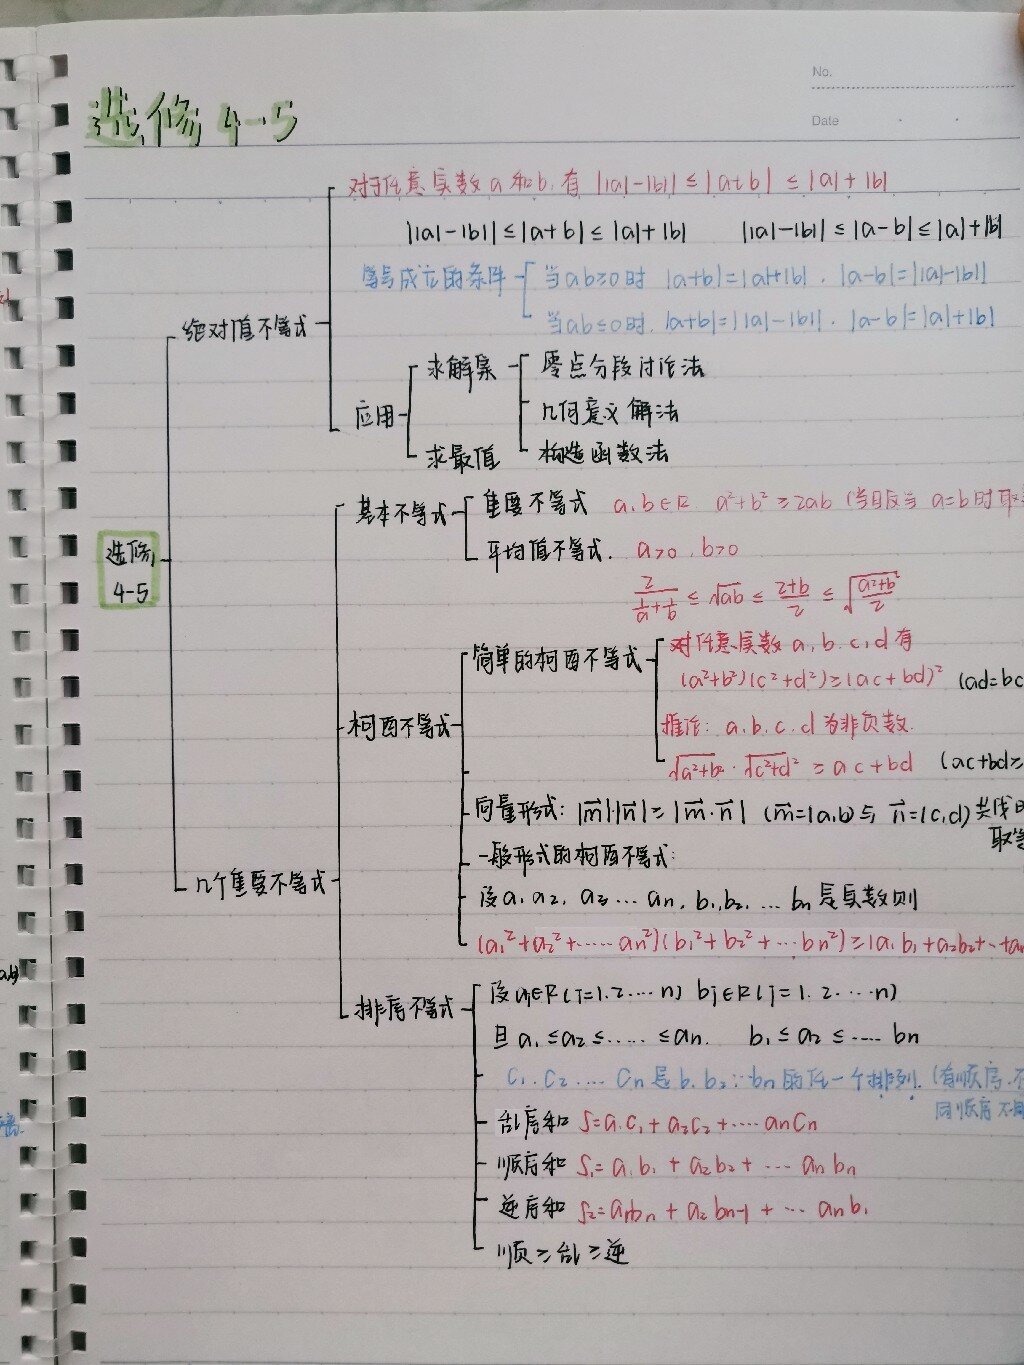 No.
Date
选修 4-5
对于任意实数 a 和 b, 有 ||a|-|b|| ≤ |a±b| ≤ |a|+|b|
||a|-|b|| ≤ |a+b| ≤ |a|+|b|  ||a|-|b|| ≤ |a-b| ≤ |a|+|b|
等号成立的条件 当ab≥0时 |a+b|=|a|+|b|, |a-b|=||a|-|b||
当ab≤0时, |a+b|=||a|-|b||, |a-b|=|a|+|b|
绝对值不等式
求解集 零点分段讨论法
应用 几何意义解法
求最值 构造函数法
基本不等式 重要不等式 a,b∈R a²+b²≥2ab (当且仅当 a=b时取
平均值不等式. a>0, b>0
选修
4-5
2/(1/a+1/b) ≤ √ab ≤ (2+b)/2 ≤ √((a²+b²)/2)
简单的柯西不等式 对任意实数 a, b, c, d 有
(a²+b²)(c²+d²)≥(ac+bd)² (ad=bc
柯西不等式 推论: a. b. c. d 为非负数.
√a²+b² · √c²+d² ≥ ac+bd (ac+bd≥
向量形式: |m⃗|·|n⃗| ≥ |m⃗·n⃗| (m⃗=(a,b)与 n⃗=(c,d) 共线时
取等
一般形式的柯西不等式:
几个重要不等式
设a₁ a₂, a₃ … an, b₁, b₂, … bn 是实数则
(a₁²+a₂²+……an²)(b₁²+b₂²+…bn²)≥(a₁b₁+a₂b₂+…+an
排序不等式 设ai∈R(i=1.2.…n) bj∈R(j=1.2.…n)
且 a₁≤a₂≤……≤an. b₁≤a₂≤…… bn
c₁.c₂…. cn 是 b₁ b₂…bn 的任一个排列. (有顺序.不
同顺序不同
乱序和 S=a₁c₁+a₂c₂+……ancn
顺序和 S₁=a₁b₁+a₂b₂+…anbn
逆序和 S₂=a₁bn+a₂bn-1+…anb₁
顺≥乱≥逆